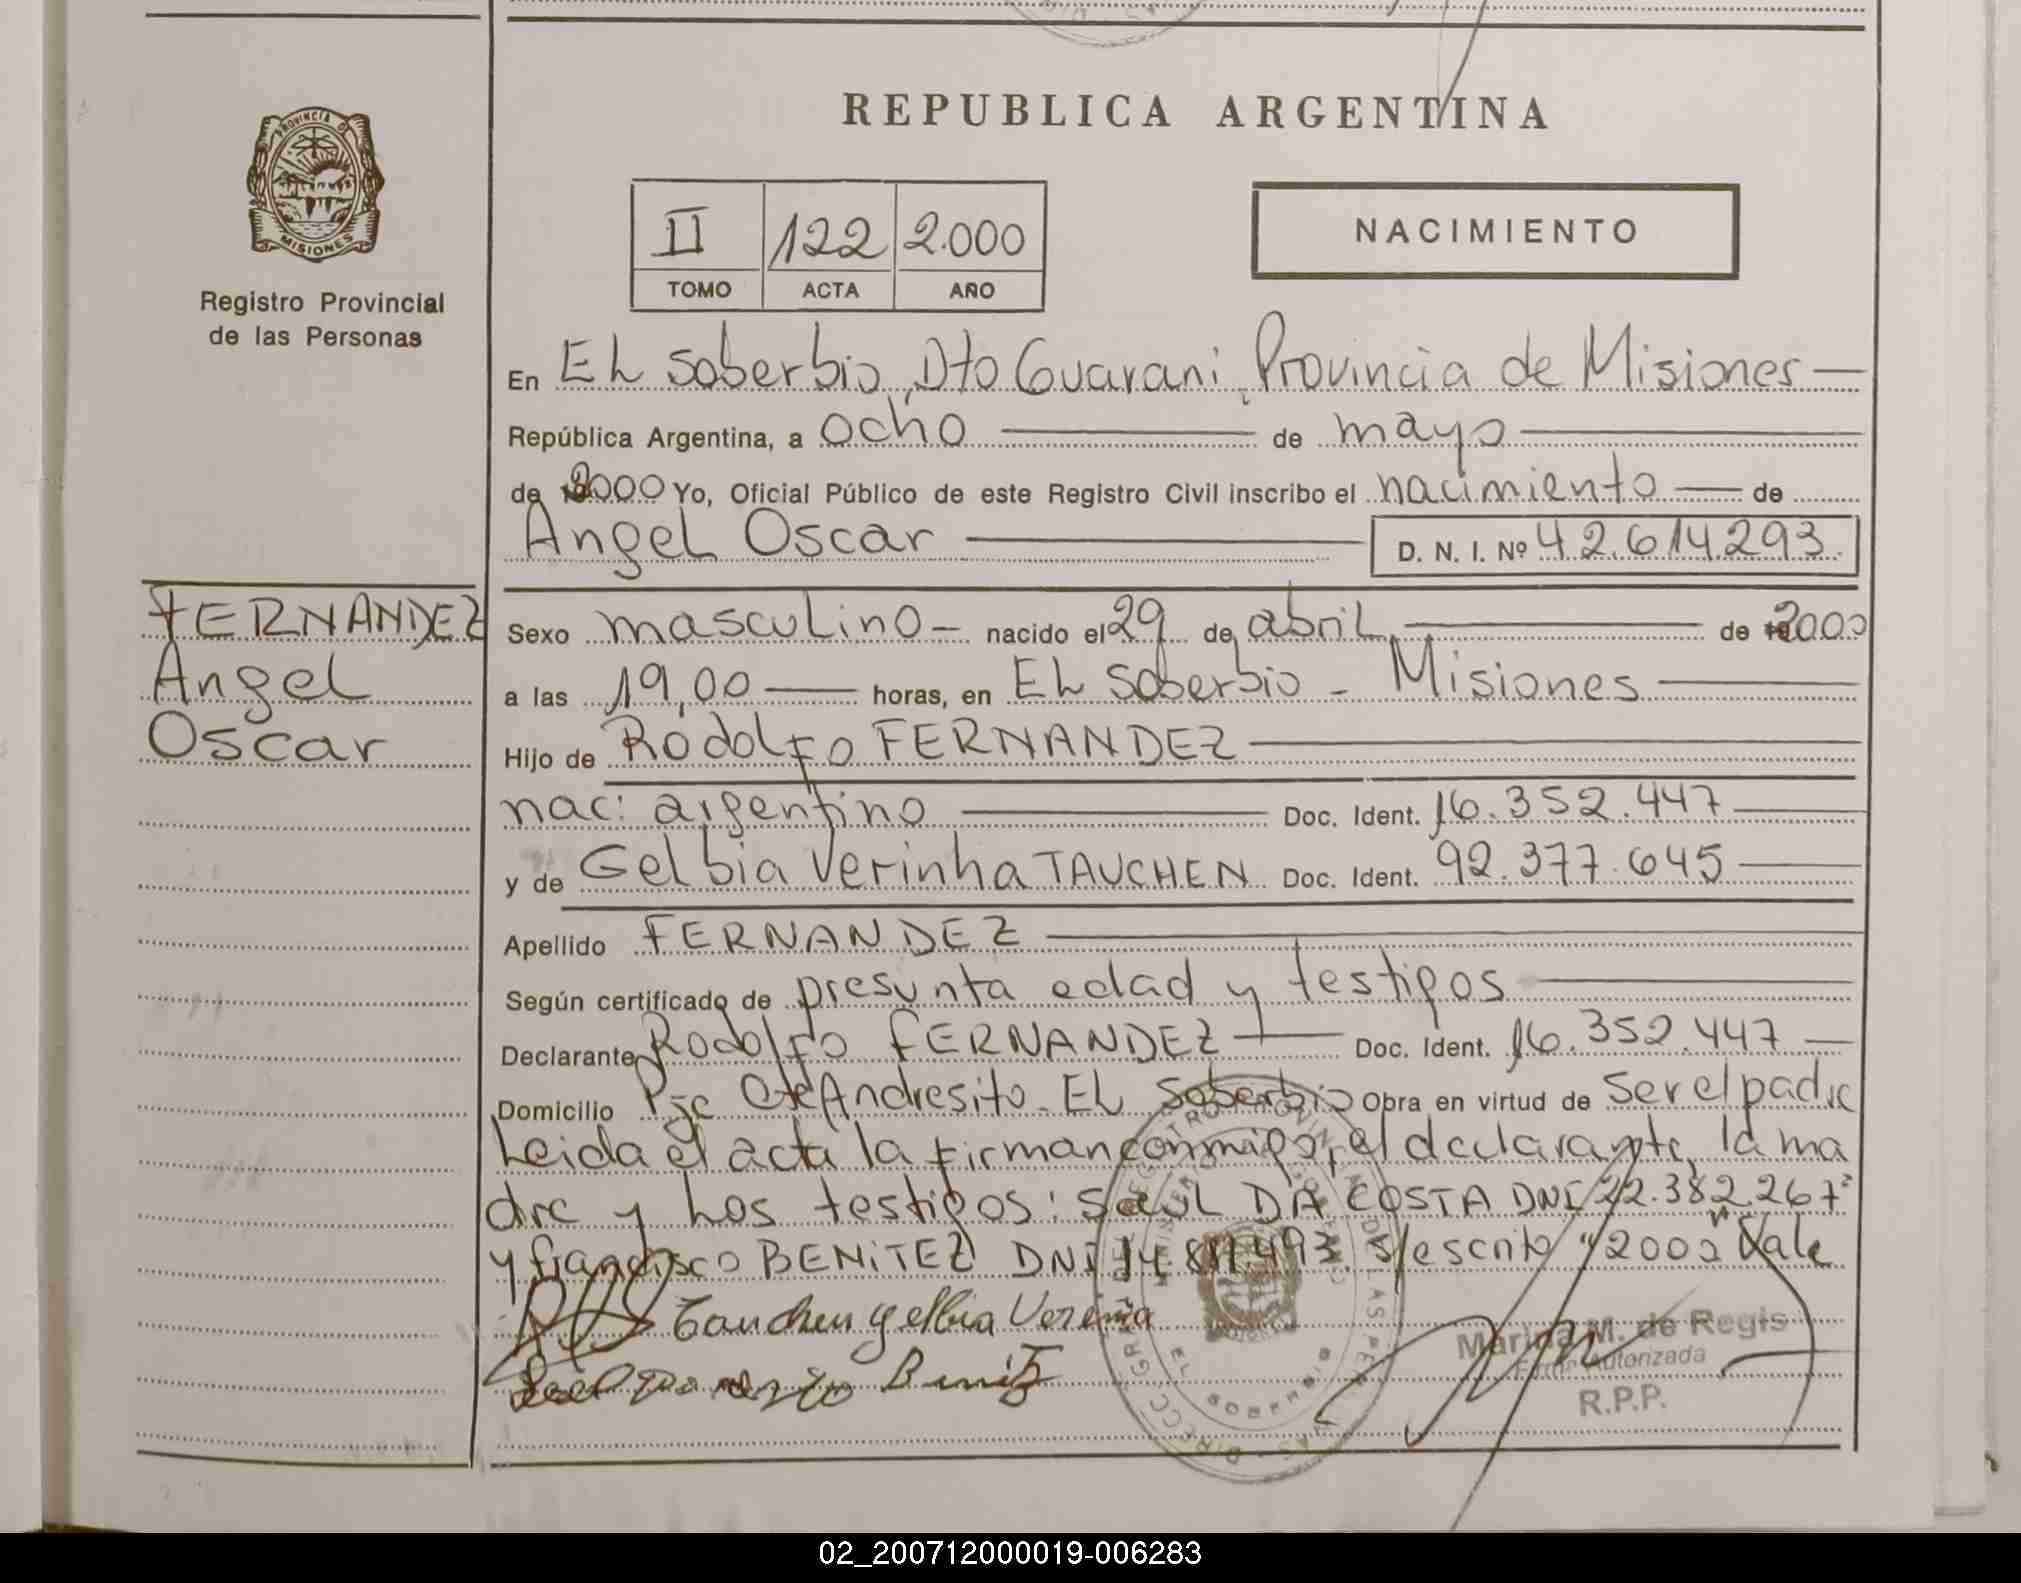 REPUBLICA ARGENTINA
PROVINCIA DE
MISIONES
Registro Provincial
de las Personas
II 122 2.000
TOMO ACTA AÑO
NACIMIENTO
En EL Soberbio, Dto Guarani, Provincia de Misiones
República Argentina, a ocho de mayo
de 2000 Yo, Oficial Público de este Registro Civil inscribo el nacimiento de
Angel Oscar D. N. I. Nº 42.614.293
FERNANDEZ
Angel
Oscar
Sexo masculino nacido el 29 de abril de 2000
a las 19,00 horas, en EL Soberbio - Misiones
Hijo de Rodolfo FERNANDEZ
nac: argentino Doc. Ident. 16.352.447
y de Gelbia Verinha TAUCHEN Doc. Ident. 92.377.645
Apellido FERNANDEZ
Según certificado de presunta edad y testigos
Declarante Rodolfo FERNANDEZ Doc. Ident. 16.352.447
Domicilio Pje Cte Andresito EL Soberbio Obra en virtud de ser el padre
Leida el acta la firman conmigo, el declarante, la ma
dre y Los testigos: Saul DA COSTA DNI 22.382.267
y francisco BENITEZ DNI S/escrito "2000" Vale
Tauchen Gelbia
Benitez
EL SOBERBIO
Marina M. de Regis
Firma Autorizada
R.P.P.
02_200712000019-006283